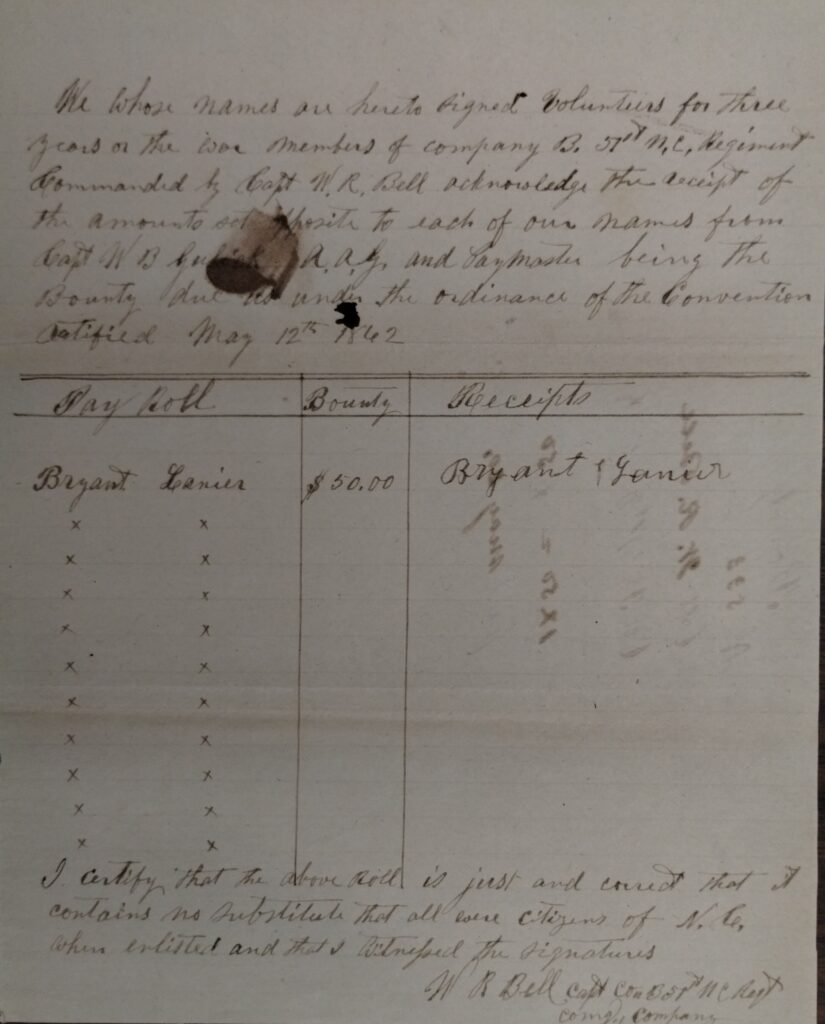 We whose names are hereto signed Volunteers for three
years or the war members of company B. 51st N.C. Regiment
Commanded by Capt W. R. Bell acknowledge the receipt of
the amounts set opposite to each of our names from
Capt W B A. A. G. and Paymaster being the
Bounty due us under the ordinance of the Convention
Ratified May 12th 1862
Pay Roll Bounty Receipts
Bryant Lanier $50.00 Bryant Lanier
x x
x x
x x
x x
x x
x x
x x
x x
x x
x x
I certify that the above Roll is just and correct that it
contains no substitute that all were citizens of N. C.
when enlisted and that I witnessed the signatures
W R Bell Capt Co B 51st N C Regt
comg. Company